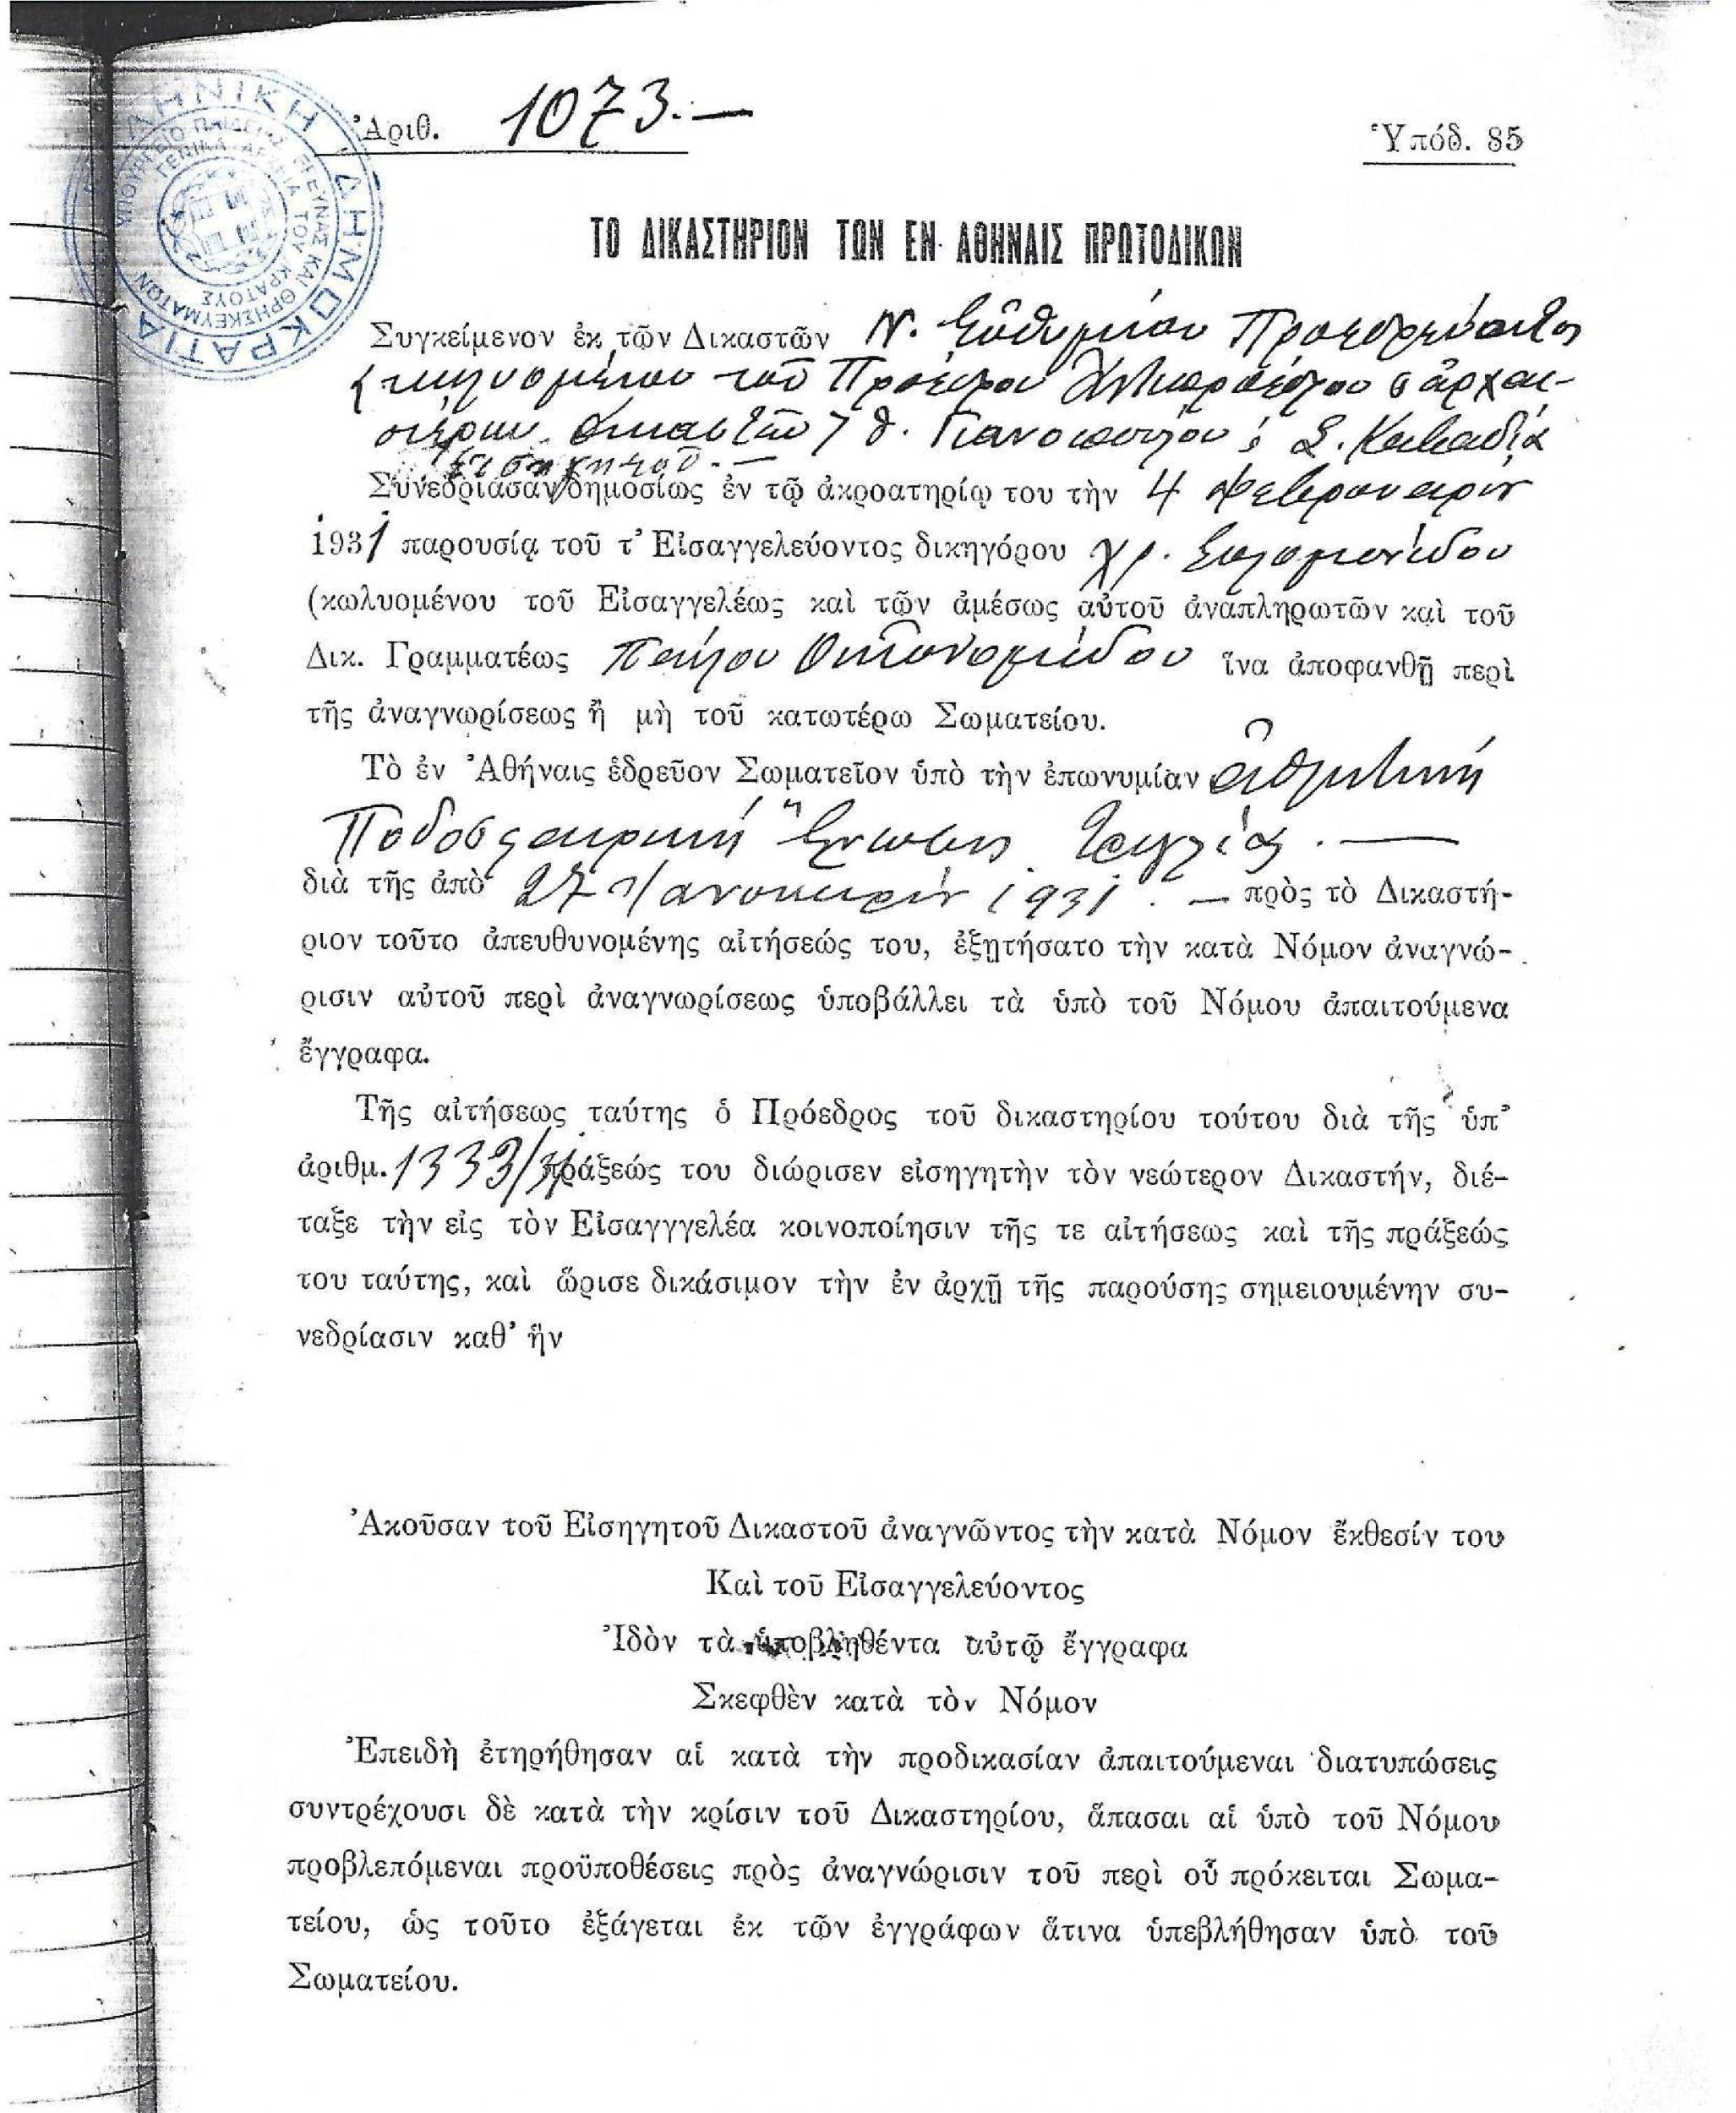 ΕΛΛΗΝΙΚΗ ΔΗΜΟΚΡΑΤΙΑ
ΥΠΟΥΡΓΕΙΟ ΠΑΙΔΕΙΑΣ ΕΡΕΥΝΑΣ ΚΑΙ ΘΡΗΣΚΕΥΜΑΤΩΝ
ΓΕΝΙΚΑ ΑΡΧΕΙΑ ΤΟΥ ΚΡΑΤΟΥΣ
Ἀριθ. 1073.—
Ὑπόδ. 85
ΤΟ ΔΙΚΑΣΤΗΡΙΟΝ ΤΩΝ ΕΝ ΑΘΗΝΑΙΣ ΠΡΩΤΟΔΙΚΩΝ
Συγκείμενον ἐκ τῶν Δικαστῶν Ν. Εὐθυμίου Προεδρεύοντος
κωλυομένου τοῦ Προέδρου ἀρχαι-
οτέρων δικαστῶν, Θ. Γιανοπούλου
Εἰσηγητοῦ.—
Συνεδριάσαν δημοσίως ἐν τῷ ἀκροατηρίῳ του τὴν 4 Φεβρουαρίου
1931 παρουσίᾳ τοῦ τ' Εἰσαγγελεύοντος δικηγόρου Χρ. Σολομωνίδου
(κωλυομένου τοῦ Εἰσαγγελέως καὶ τῶν ἀμέσως αὐτοῦ ἀναπληρωτῶν καὶ τοῦ
Δικ. Γραμματέως Παύλου Οἰκονομίδου ἵνα ἀποφανθῇ περὶ
τῆς ἀναγνωρίσεως ἢ μὴ τοῦ κατωτέρω Σωματείου.
Τὸ ἐν Ἀθήναις ἑδρεῦον Σωματεῖον ὑπὸ τὴν ἐπωνυμίαν Ἀθλητική
Ποδοσφαιρική Ἕνωσις Τριγλίας.—
διὰ τῆς ἀπὸ 27 Ιανουαρίου 1931.— πρὸς τὸ Δικαστή-
ριον τοῦτο ἀπευθυνομένης αἰτήσεώς του, ἐξῃτήσατο τὴν κατὰ Νόμον ἀναγνώ-
ρισιν αὐτοῦ περὶ ἀναγνωρίσεως ὑποβάλλει τὰ ὑπὸ τοῦ Νόμου ἀπαιτούμενα
ἔγγραφα.
Τῆς αἰτήσεως ταύτης ὁ Πρόεδρος τοῦ δικαστηρίου τούτου διὰ τῆς ὑπ'
ἀριθμ. 1333/31 πράξεώς του διώρισεν εἰσηγητὴν τὸν νεώτερον Δικαστήν, διέ-
ταξε τὴν εἰς τὸν Εἰσαγγγελέα κοινοποίησιν τῆς τε αἰτήσεως καὶ τῆς πράξεώς
του ταύτης, καὶ ὥρισε δικάσιμον τὴν ἐν ἀρχῇ τῆς παρούσης σημειουμένην συ-
νεδρίασιν καθ' ἣν
Ἀκοῦσαν τοῦ Εἰσηγητοῦ Δικαστοῦ ἀναγνῶντος τὴν κατὰ Νόμον ἔκθεσίν του
Καὶ τοῦ Εἰσαγγελεύοντος
Ἰδὸν τὰ ὑποβληθέντα αὐτῷ ἔγγραφα
Σκεφθὲν κατὰ τὸν Νόμον
Ἐπειδὴ ἐτηρήθησαν αἱ κατὰ τὴν προδικασίαν ἀπαιτούμεναι διατυπώσεις
συντρέχουσι δὲ κατὰ τὴν κρίσιν τοῦ Δικαστηρίου, ἅπασαι αἱ ὑπὸ τοῦ Νόμου
προβλεπόμεναι προϋποθέσεις πρὸς ἀναγνώρισιν τοῦ περὶ οὗ πρόκειται Σωμα-
τείου, ὡς τοῦτο ἐξάγεται ἐκ τῶν ἐγγράφων ἅτινα ὑπεβλήθησαν ὑπὸ τοῦ
Σωματείου.